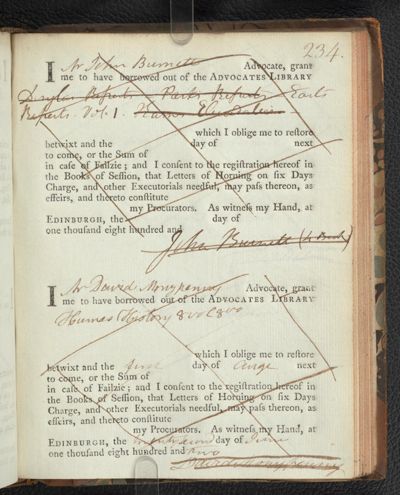 234.
I Mr John Burnett Advocate, grant
me to have borrowed out of the ADVOCATES LIBRARY
Reports. Vol. 1.
which I oblige me to restore
betwixt and the day of next
to come, or the Sum of
in case of Failzie; and I consent to the registration hereof in
the Books of Session, that Letters of Horning on six Days
Charge, and other Executorials needful, may pass thereon, as
effeirs, and thereto constitute
my Procurators. As witness my Hand, at
EDINBURGH, the day of
one thousand eight hundred and
John Burnett
I Mr David Monypenny Advocate, grant
me to have borrowed out of the ADVOCATES LIBRARY
Humes History 8 vol 8vo
which I oblige me to restore
betwixt and the first day of next
to come, or the Sum of
in case of Failzie; and I consent to the registration hereof in
the Books of Session, that Letters of Horning on six Days
Charge, and other Executorials needful, may pass thereon, as
effeirs, and thereto constitute
my Procurators. As witness my Hand, at
EDINBURGH, the day of June
one thousand eight hundred and two